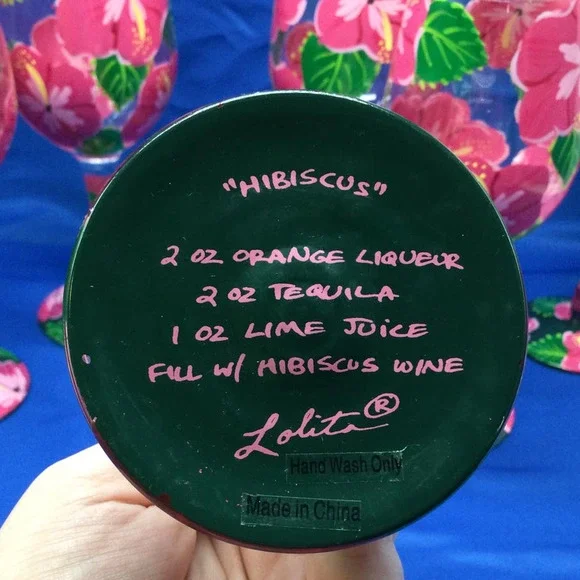 "HIBISCUS"
2 OZ ORANGE LIQUEUR
2 OZ TEQUILA
1 OZ LIME JUICE
FILL W/ HIBISCUS WINE
Lolita®
Hand Wash Only
Made in China